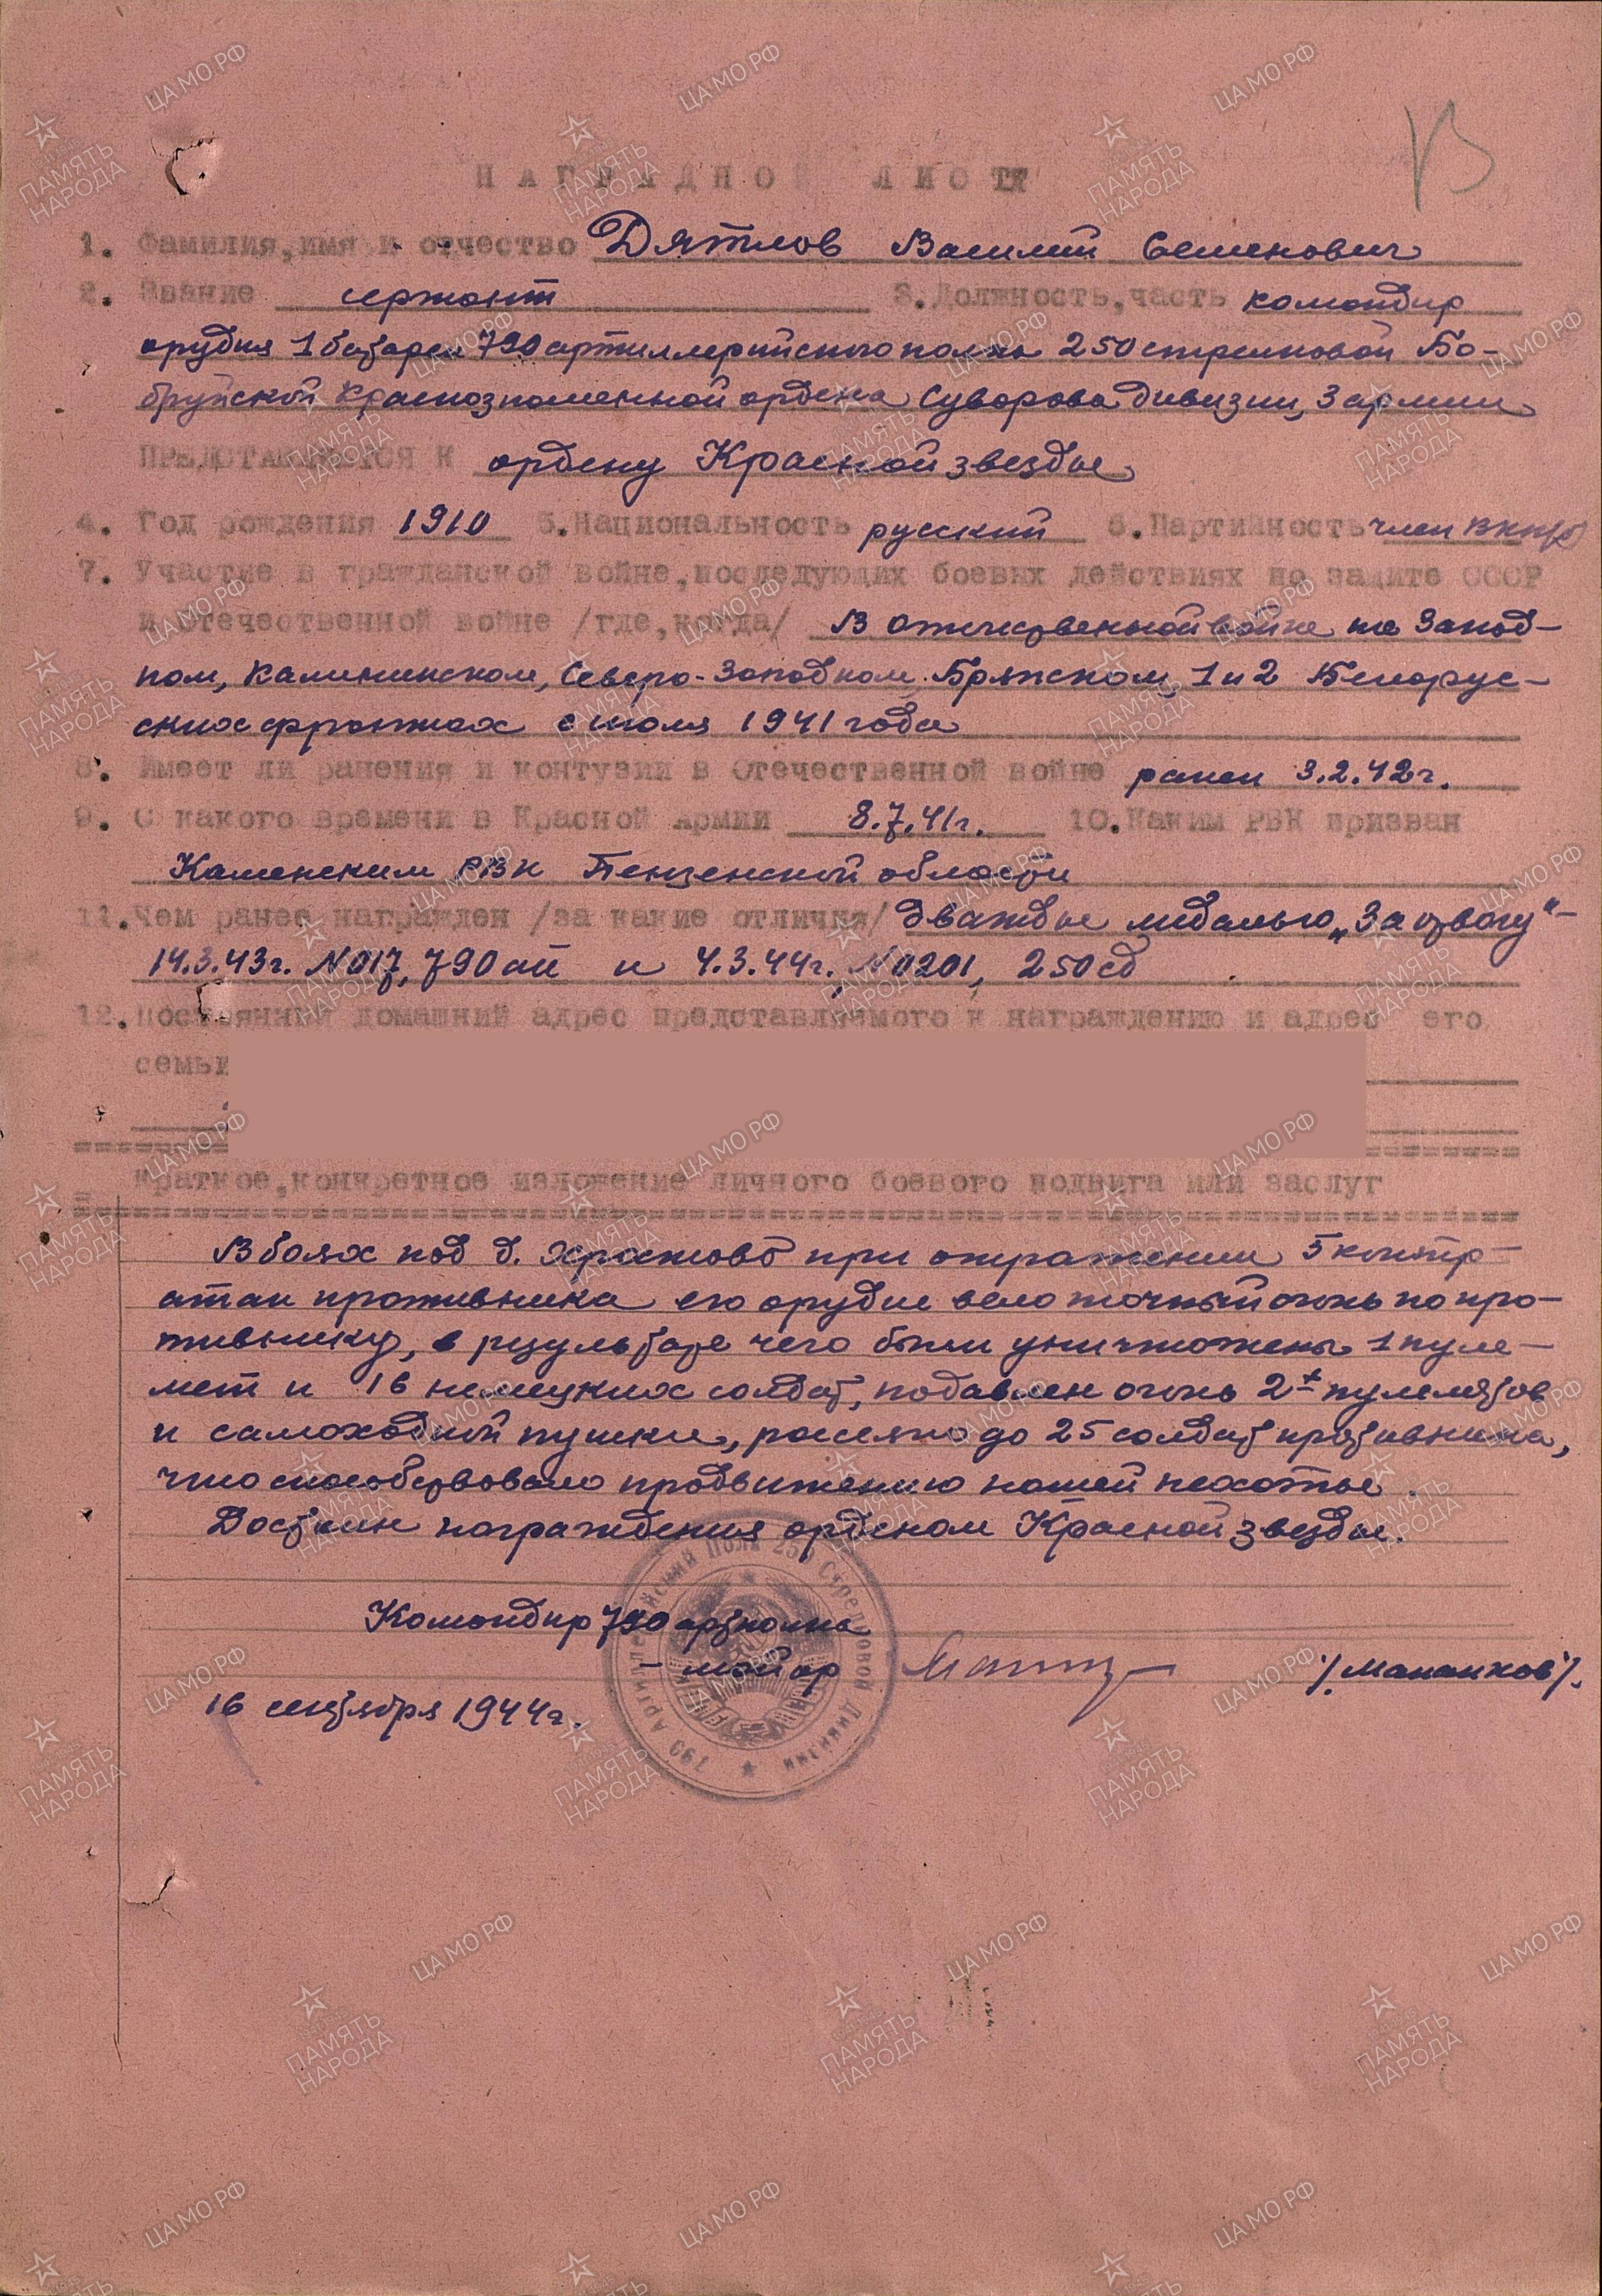 В
НАГРАДНОЙ ЛИСТ
1. Фамилия, имя и отчество Дятлов Василий Семенович
2. Звание сержант 3. Должность, часть командир
орудия 1 батареи 790 артиллерийского полка 250 стрелковой Бо-
бруйской Краснознаменной ордена Суворова дивизии, 3 армии
ПРЕДСТАВЛЯЕТСЯ К ордену Красной звезды
4. Год рождения 1910 5. Национальность русский 6. Партийность член ВКП(б)
7. Участие в гражданской войне, последующих боевых действиях по защите СССР
и отечественной войне /где, когда/ В отечественной войне на Запад-
ном, Калининском, Северо-Западном, Брянском, 1 и 2 Белорус-
ских фронтах с июля 1941 года
8. Имеет ли ранения и контузии в Отечественной войне ранен 3.2.42г.
9. С какого времени в Красной Армии 8.7.41г. 10. Каким РВК призван
Каменским РВК Пензенской области
11. Чем ранее награжден /за какие отличия/ дважды медалью „За отвагу"-
14.3.43г. N017, 790 ап и 4.3.44г. N0201, 250 сд
12. Постоянный домашний адрес представляемого к награждению и адрес его
семьи
Краткое, конкретное изложение личного боевого подвига или заслуг
В боях под д. при отражении 5 контр-
атак противника его орудие вело точный огонь по про-
тивнику, в результате чего были уничтожены 1 пуле-
мет и 16 немецких солдат, подавлен огонь 2х пулеметов
и самоходной пушки, рассеяно до 25 солдат противника,
что способствовало продвижению нашей пехоты.
Достоин награждения орденом Красной звезды.
Командир 790 артполка
- майор /Мананков/.
16 сентября 1944г.
790 Артиллерийский Полк 250 Стрелковой Дивизии
ПАМЯТЬ НАРОДА
ЦА МО РФ